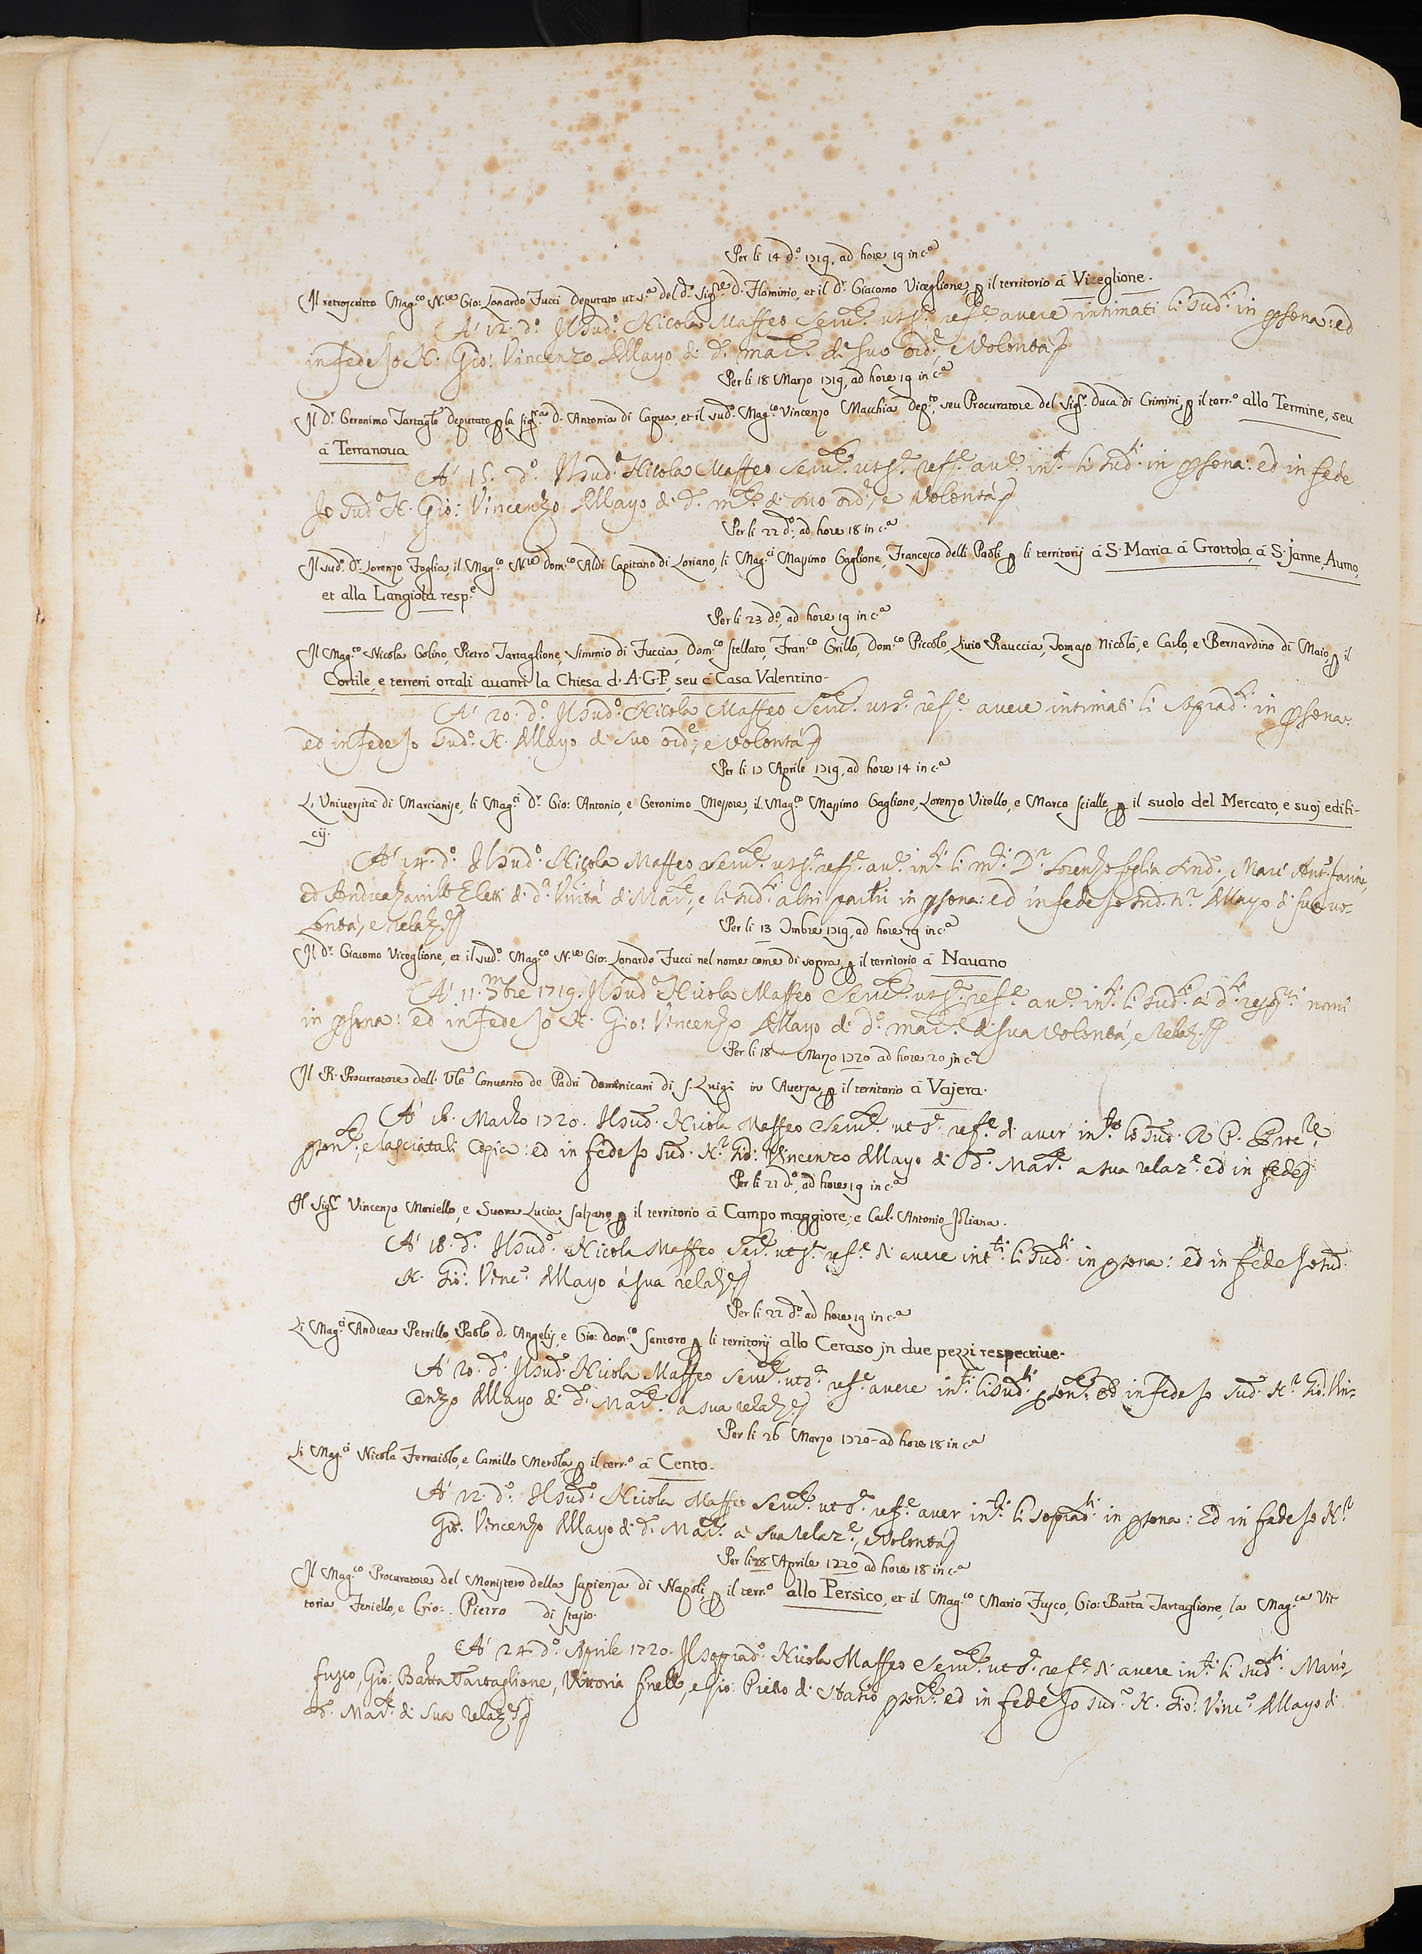 Per li 14 d.º 1719, ad hore 19 in c.ª
Il retroscritto Mag.co N.re Gio: Lonardo Fucci Deputato ut s.ª del d.º Sig.re D. Flaminio, et il D.r Giacomo Viceglione, p il territorio á Viceglione.
A' 12. d.º Il sud.º Nicola Maffeo Serv.e ut s.ª ref.e avere intimati li sud.i in psona: ed
in fede Io N. Gio: Vincenzo Mayo di d.ª Mar.e di suo ord.e, e volontà
Per li 18 Marzo 1719, ad hore 19 in c.ª
Il D.r Geronimo Tartagl.e Deputato p la sig.ra D. Antonia di Capua, et il sud.º Mag.co Vincenzo Macchia Dep.to, seu Procuratore del Sig.r Duca di Crimini, p il terr.º allo Termine, seu
á Terranova
A' 15. d.º Il sud.º Nicola Maffeo Serv.e ut s.ª ref.e av.e int.i li sud.i in psona: ed in fede
Io sud.º N. Gio: Vincenzo Mayo di d.ª M.e di suo ord.e, e volontà
Per li 22 d.º, ad hore 18 in c.ª
Il sud.º D.r Lorenzo Foglia, il Mag.co N.re Dom.co Aldi Capitano di Loriano, li Mag.ci Massimo Gaglione, Francesco delli Paoli, p li territorij á S. Maria á Grottola, á S. Janne, Aurno,
et alla Langiola resp.e
Per li 23 d.º, ad hore 19 in c.ª
Il Mag.co Nicola Golino, Pietro Tartaglione, Simmio di Fuccia, Dom.co Stellato, Fran.co Grillo, Dom.co Piccolo, Livio Rauccia, Tomaso Nicolò, e Carlo, e Bernardino di Maio, p il
Cortile, e terreni ortali avanti la Chiesa d. A.G.P., seu á Casa Valentino.
A' 20. d.º Il sud.º Nicola Maffeo Serv.e ut s.ª ref.e avere intimati li soprad.i in psona:
ed in fede Io sud.º N. Mayo di suo ord.e, e volontà
Per li 17 Aprile 1719, ad hore 14 in c.ª
L. Università di Marcianise, li Mag.ci D.r Gio: Antonio, e Geronimo Messore, il Mag.co Massimo Gaglione, Lorenzo Vitello, e Marco Scialla, p il suolo del Mercato, e suoj edifi-
cij.
A' 14. d.º Il sud.º Nicola Maffeo Serv.e ut s.ª ref.e av.e int.i li M.ci D.r Lorenzo Foglia And.ª, e Marc' Ant.º
ed Andrea Eletti di d.ª Univ.tà di Mar.e, e li sud.i altri partic.i in psona: ed in fede Io sud. N.r Mayo di sua vo-
lontà, e relaz.e
Per li 13 Xmbre 1719, ad hore 19 in c.ª
Il D.r Giacomo Viceglione, et il sud.º Mag.co N.re Gio: Lonardo Fucci nel nome come di sopra, p il territorio á Navano
A' 11. Xmbre 1719. Il sud.º Nicola Maffeo Serv.e ut s.ª ref.e av.e int.i li sud.i á d.i resp.vi nomi
in psona: ed in fede Io N. Gio: Vincenzo Mayo di d.º Mar.e di sua volontà, e relaz.e
Per li 18 Marzo 1720 ad hore 20 in c.ª
Il R. Procuratore dell. Vle Convento de Padri Domenicani di S. Luigi in Aversa, p il territorio á Vajera.
A' 16. Marzo 1720. Il sud.º Nicola Maffeo Serv.e ut s.ª ref.e di aver int.to lo sud. R. P. Proc.re
pson.e, e lasciatali Copia: ed in fede Io sud. N.r Gio: Vincenzo Mayo di d.ª Mar.e a sua relaz.e ed in fede
Per li 21 d.º, ad hore 19 in c.ª
Il Sig.r Vincenzo Moriello, e Suora Lucia Salzano, p il territorio á Campo maggiore, e Carl. Antonio Iuliana.
A' 18. d.º Il sud.º Nicola Maffeo Ser.e ut s.ª ref.e di avere int.ti li sud.i in psona: ed in fede Io sud.
N. Gio: Vinc.º Mayo á sua relaz.e
Per li 22 d.º ad hore 19 in c.ª
Li Mag.ci Andrea Petrillo, Paolo d. Angelis, e Gio: Dom.co Santoro, p li territorij allo Ceraso in due pezzi respective.
A' 20. d.º Il sud.º Nicola Maffeo Serv.e ut s.ª ref.e avere int.i li sud.i pson.e ed in fede Io sud. N.r Gio: Vin-
cenzo Mayo di d.ª Mar.e a sua relaz.e
Per li 26 Marzo 1720 ad hore 18 in c.ª
Li Mag.ci Nicola Ferraiolo, e Camillo Merola, p il terr.º á Cento.
A' 22. d.º Il sud.º Nicola Maffeo Serv.e ut s.ª ref.e aver int.i li soprad.i in psona: Ed in fede Io N.r
Gio: Vincenzo Mayo di d.ª Mar.e a sua relaz.e, e volontà
Per li 28 Aprile 1720 ad hore 18 in c.ª
Il Mag.co Procuratore del Monistero della Sapienza di Napoli, p il terr.º allo Persico, et il Mag.co Mario Fusco, Gio: Batta Tartaglione, la Mag.ca Vit-
toria Feniello, e Gio: Pietro di Stasio.
A' 24. d.º Aprile 1720. Il soprad.º Nicola Maffeo Serv.e ut s.ª ref.e di avere int.i li sud.i Mario
Fusco, Gio: Batta Tartaglione, Vittoria Finello, e Gio: Pietro di Stasio pson.e ed in fede Io sud.º N. Gio: Vinc.º Mayo di
d.ª Mar.e di sua relaz.e